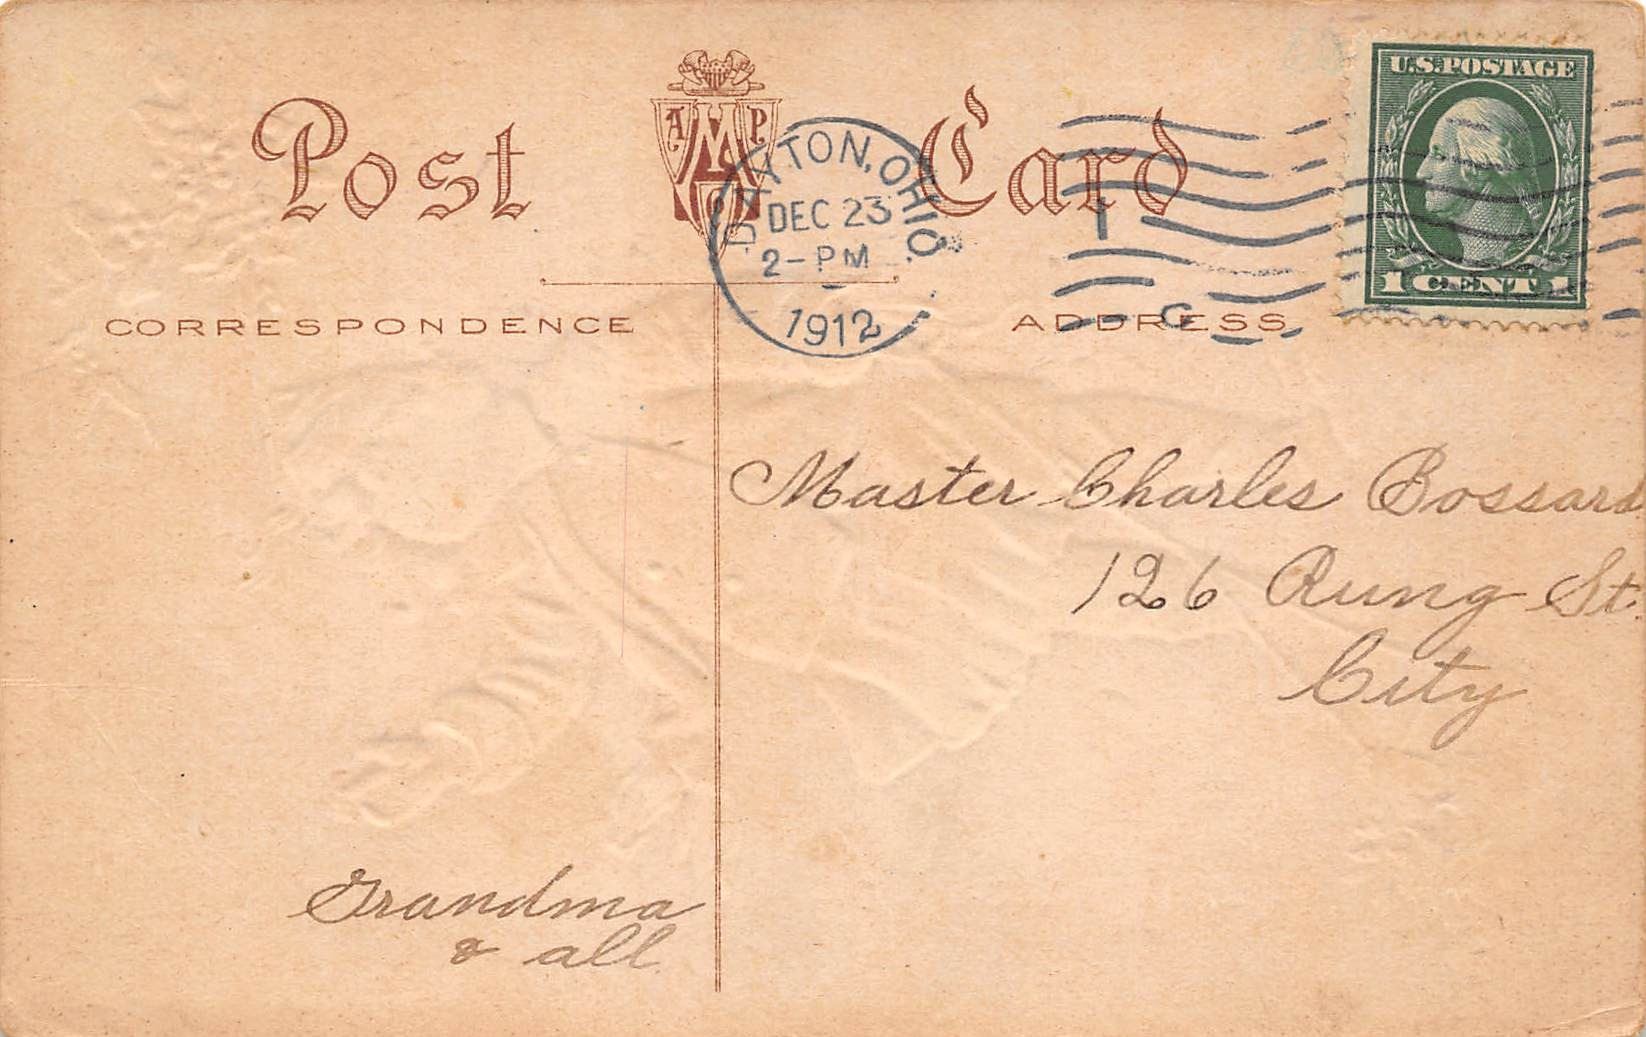 Post Card
A M P Co
DAYTON, OHIO.
DEC 23
2-PM
1912
U.S. POSTAGE
1 CENT 1
CORRESPONDENCE
ADDRESS
Master Charles Bossard
126 Rung St.
City
Grandma
& all